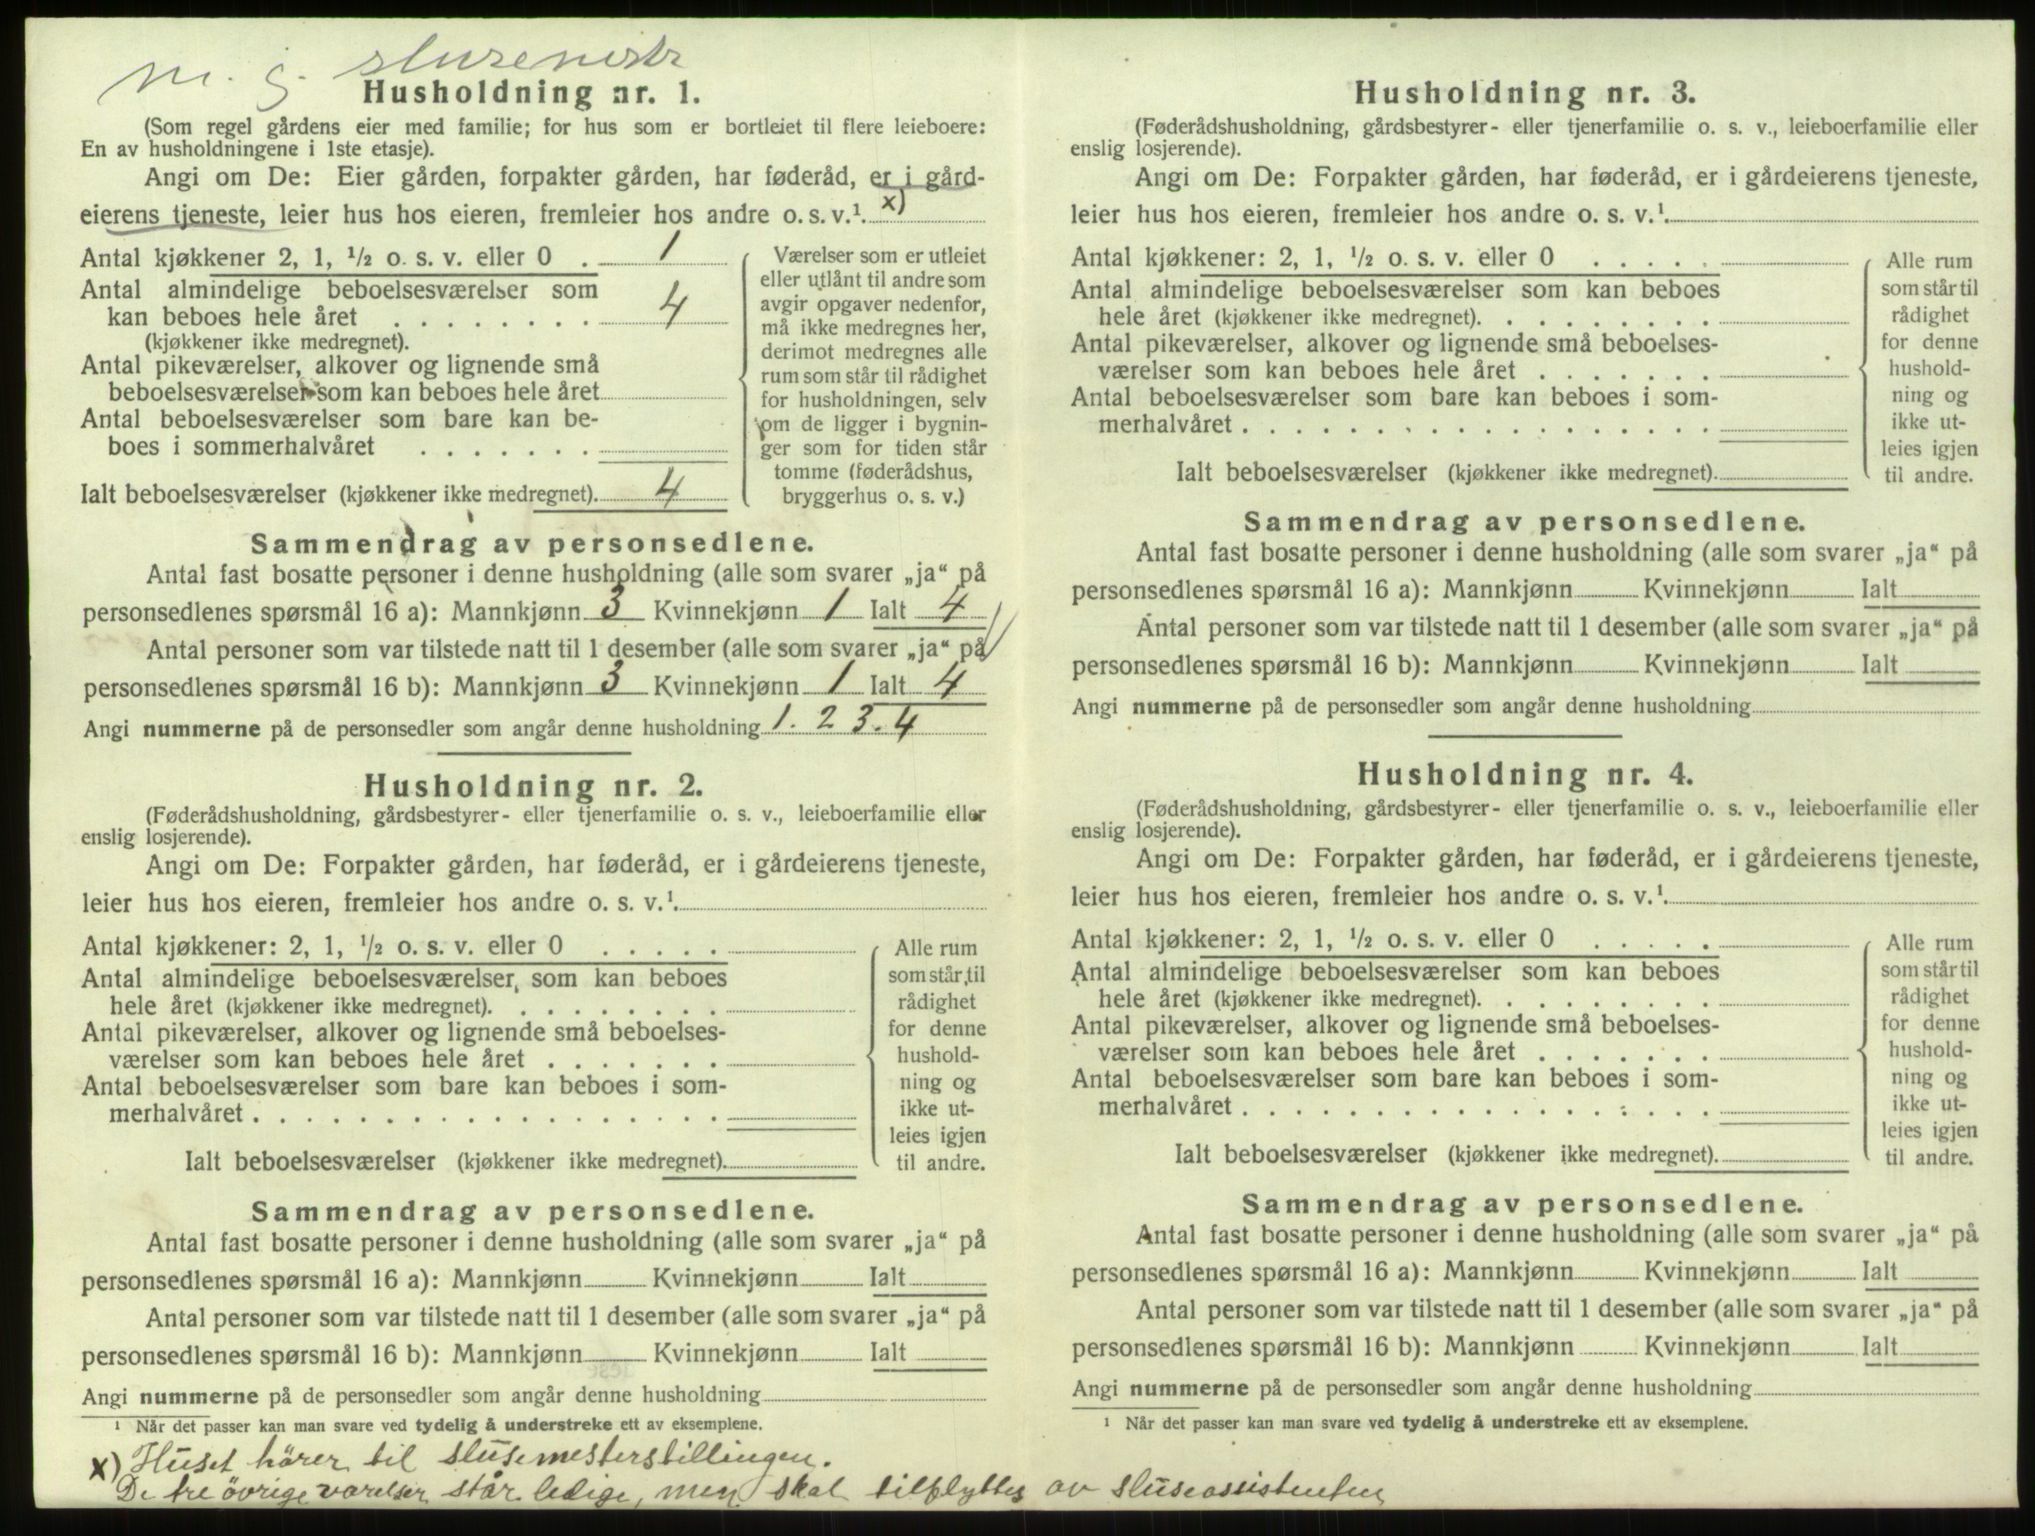 m. g. slusemestr
Husholdning nr. 1.
(Som regel gårdens eier med familie; for hus som er bortleiet til flere leieboere:
En av husholdningene i 1ste etasje).
Angi om De: Eier gården, forpakter gården, har føderåd, er i gård-
eierens tjeneste, leier hus hos eieren, fremleier hos andre o. s. v.¹. x)
Antal kjøkkener 2, 1, ½ o. s. v. eller 0 . 1
Antal almindelige beboelsesværelser som
kan beboes hele året . . . . . . . . 4
(kjøkkener ikke medregnet).
Antal pikeværelser, alkover og lignende små
beboelsesværelser som kan beboes hele året
Antal beboelsesværelser som bare kan be-
boes i sommerhalvåret . . . . . . .
Ialt beboelsesværelser (kjøkkener ikke medregnet). 4
Værelser som er utleiet
eller utlånt til andre som
avgir opgaver nedenfor,
må ikke medregnes her,
derimot medregnes alle
rum som står til rådighet
for husholdningen, selv
om de ligger i bygnin-
ger som for tiden står
tomme (føderådshus,
bryggerhus o. s. v.)
Sammendrag av personsedlene.
Antal fast bosatte personer i denne husholdning (alle som svarer „ja“ på
personsedlenes spørsmål 16 a): Mannkjønn 3 Kvinnekjønn 1 Ialt 4
Antal personer som var tilstede natt til 1 desember (alle som svarer „ja“ på
personsedlenes spørsmål 16 b): Mannkjønn 3 Kvinnekjønn 1 Ialt 4
Angi nummerne på de personsedler som angår denne husholdning 1. 2 3. 4
Husholdning nr. 2.
(Føderådshusholdning, gårdsbestyrer- eller tjenerfamilie o. s. v., leieboerfamilie eller
enslig losjerende).
Angi om De: Forpakter gården, har føderåd, er i gårdeierens tjeneste,
leier hus hos eieren, fremleier hos andre o. s. v.¹.
Antal kjøkkener: 2, 1, ½ o. s. v. eller 0 . . . . .
Antal almindelige beboelsesværelser, som kan beboes
hele året (kjøkkener ikke medregnet). . . . . . . . .
Antal pikeværelser, alkover og lignende små beboelses-
værelser som kan beboes hele året . . . . . . .
Antal beboelsesværelser som bare kan beboes i som-
merhalvåret . . . . . . . . . . . . . . . . . .
Ialt beboelsesværelser (kjøkkener ikke medregnet).
Alle rum
som står til
rådighet
for denne
hushold-
ning og
ikke ut-
leies igjen
til andre.
Sammendrag av personsedlene.
Antal fast bosatte personer i denne husholdning (alle som svarer „ja“ på
personsedlenes spørsmål 16 a): Mannkjønn Kvinnekjønn Ialt
Antal personer som var tilstede natt til 1 desember (alle som svarer „ja“ på
personsedlenes spørsmål 16 b): Mannkjønn Kvinnekjønn Ialt
Angi nummerne på de personsedler som angår denne husholdning
¹ Når det passer kan man svare ved tydelig å understreke ett av eksemplene.
x) Huset hörer til slusemesterstillingen.
De tre övrige værelser står ledige, men skal tilflyttes av sluseassistenten
Husholdning nr. 3.
(Føderådshusholdning, gårdsbestyrer- eller tjenerfamilie o. s. v., leieboerfamilie eller
enslig losjerende).
Angi om De: Forpakter gården, har føderåd, er i gårdeierens tjeneste,
leier hus hos eieren, fremleier hos andre o. s. v.¹.
Antal kjøkkener: 2, 1, ½ o. s. v. eller 0 . . . . .
Antal almindelige beboelsesværelser som kan beboes
hele året (kjøkkener ikke medregnet). . . . . . . . .
Antal pikeværelser, alkover og lignende små beboelses-
værelser som kan beboes hele året . . . . . . .
Antal beboelsesværelser som bare kan beboes i som-
merhalvåret . . . . . . . . . . . . . . . . . .
Ialt beboelsesværelser (kjøkkener ikke medregnet).
Alle rum
som står til
rådighet
for denne
hushold-
ning og
ikke ut-
leies igjen
til andre.
Sammendrag av personsedlene.
Antal fast bosatte personer i denne husholdning (alle som svarer „ja“ på
personsedlenes spørsmål 16 a): Mannkjønn Kvinnekjønn Ialt
Antal personer som var tilstede natt til 1 desember (alle som svarer „ja“ på
personsedlenes spørsmål 16 b): Mannkjønn Kvinnekjønn Ialt
Angi nummerne på de personsedler som angår denne husholdning
Husholdning nr. 4.
(Føderådshusholdning, gårdsbestyrer- eller tjenerfamilie o. s. v., leieboerfamilie eller
enslig losjerende).
Angi om De: Forpakter gården, har føderåd, er i gårdeierens tjeneste,
leier hus hos eieren, fremleier hos andre o. s. v.¹.
Antal kjøkkener: 2, 1, ½ o. s. v. eller 0 . . . . .
Antal almindelige beboelsesværelser som kan beboes
hele året (kjøkkener ikke medregnet). . . . . . . . .
Antal pikeværelser, alkover og lignende små beboelses-
værelser som kan beboes hele året . . . . . . .
Antal beboelsesværelser som bare kan beboes i som-
merhalvåret . . . . . . . . . . . . . . . . . .
Ialt beboelsesværelser (kjøkkener ikke medregnet).
Alle rum
som står til
rådighet
for denne
hushold-
ning og
ikke ut-
leies igjen
til andre.
Sammendrag av personsedlene.
Antal fast bosatte personer i denne husholdning (alle som svarer „ja“ på
personsedlenes spørsmål 16 a): Mannkjønn Kvinnekjønn Ialt
Antal personer som var tilstede natt til 1 desember (alle som svarer „ja“ på
personsedlenes spørsmål 16 b): Mannkjønn Kvinnekjønn Ialt
Angi nummerne på de personsedler som angår denne husholdning
¹ Når det passer kan man svare ved tydelig å understreke ett av eksemplene.